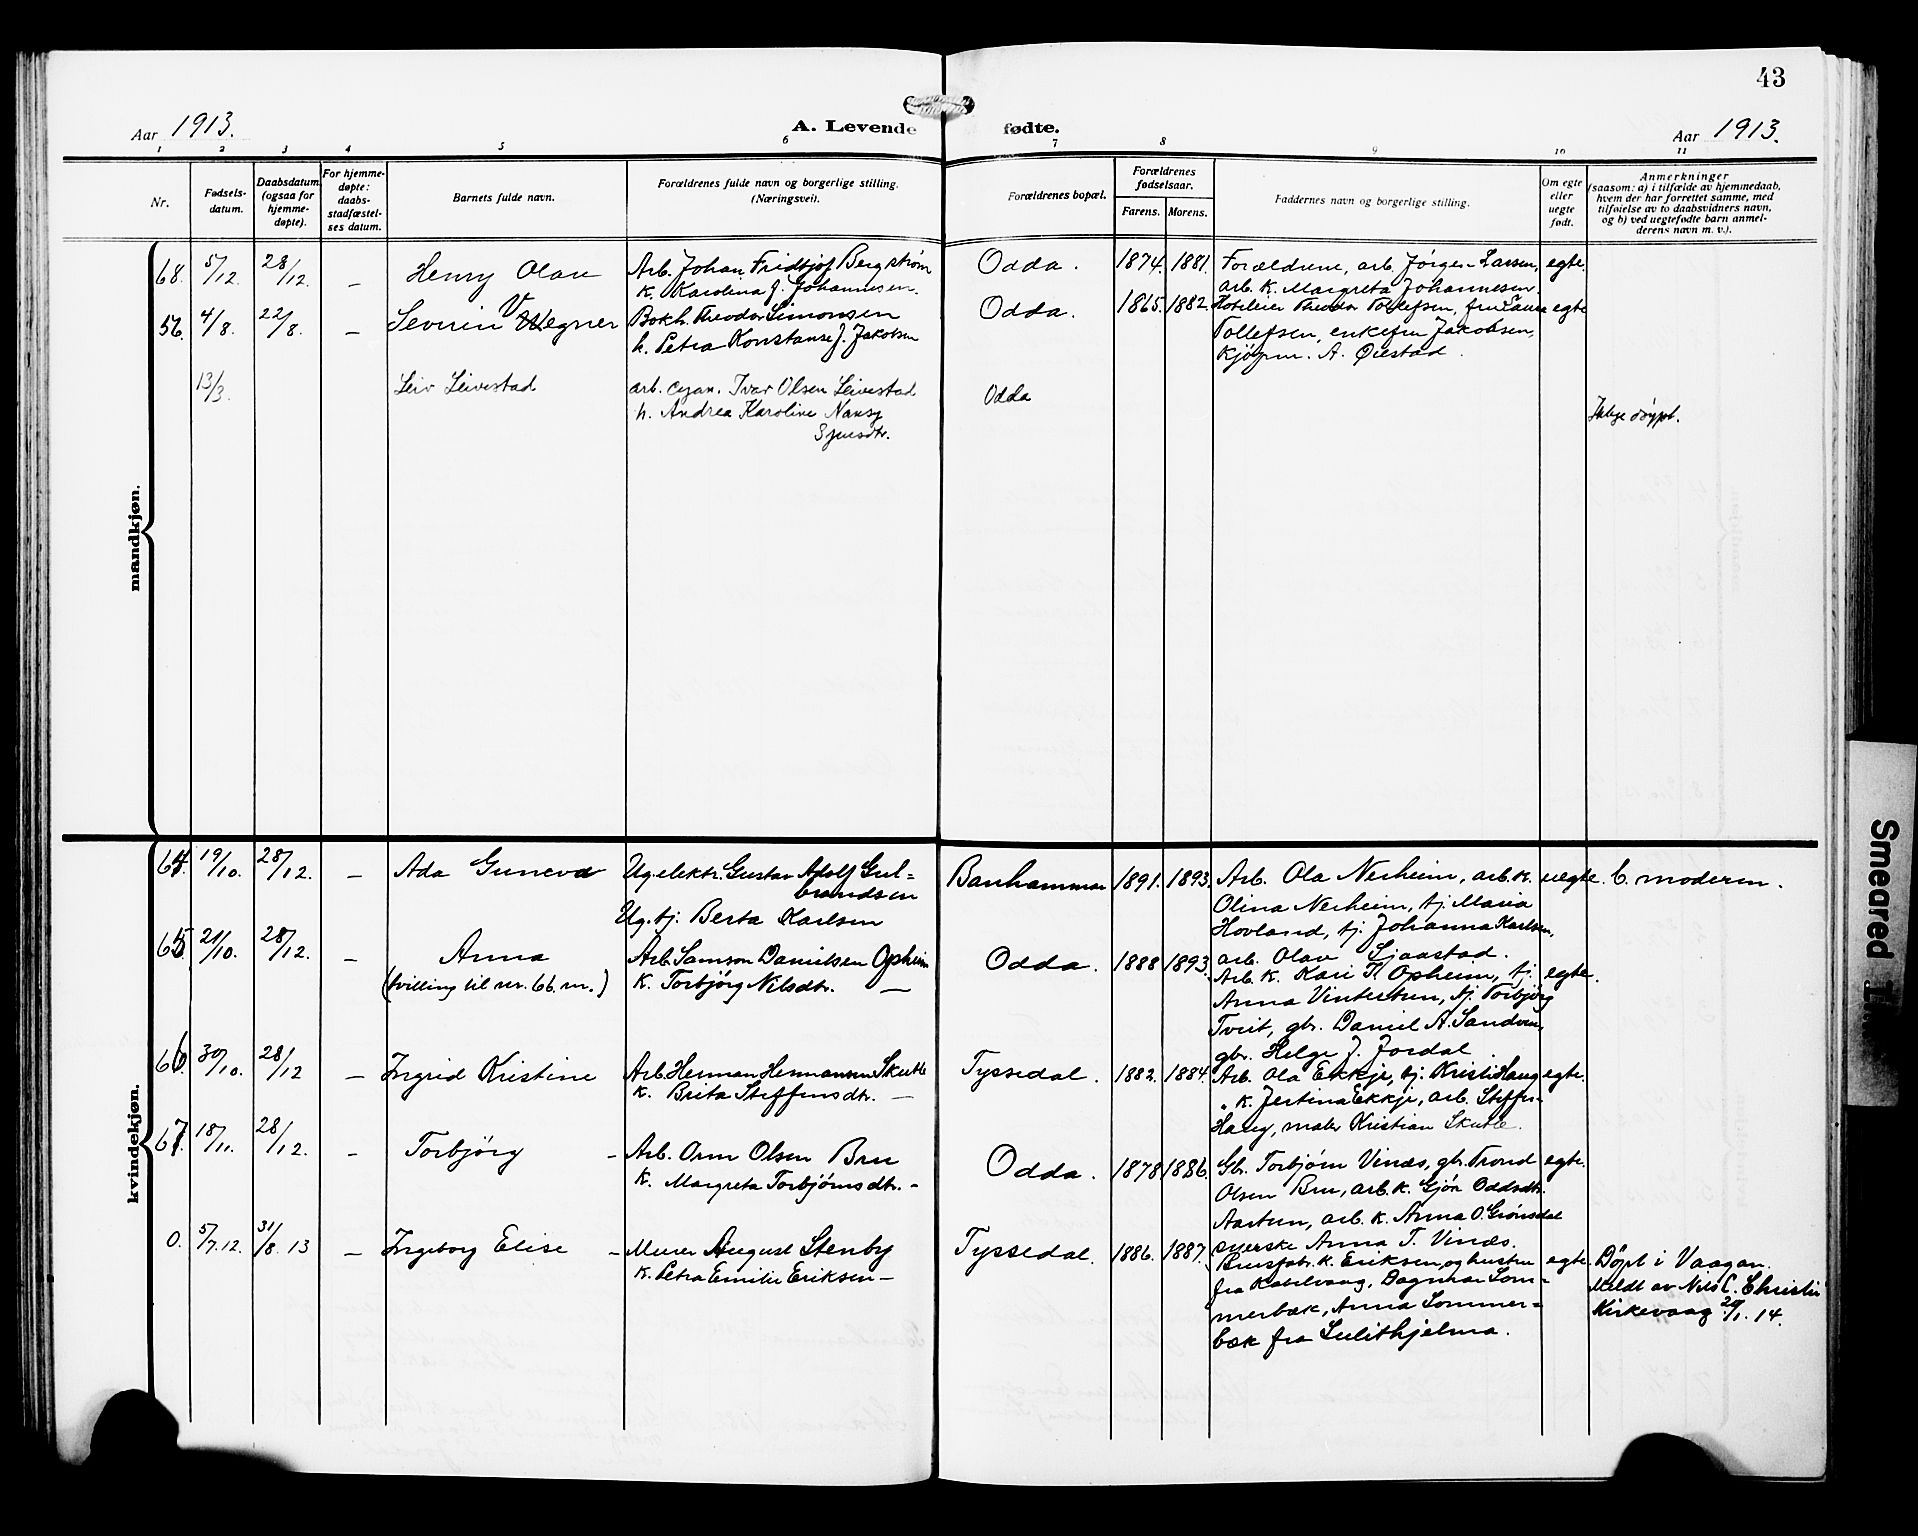 43
Aar 1913. A. Levende fødte. Aar 1913.
1 2 3 4 5 6 7 8 9 10 11
Nr.
Fødsels-
datum.
Daabsdatum
(ogsaa for
hjemme-
døpte).
For hjemme-
døpte:
daabs-
stadfæstel-
ses datum.
Barnets fulde navn.
Forældrenes fulde navn og borgerlige stilling.
(Næringsvei).
Forældrenes bopæl.
Forældrenes
fødselsaar.
Farens. Morens.
Faddernes navn og borgerlige stilling.
Om egte
eller
uegte
født.
Anmerkninger
(saasom: a) i tilfælde av hjemmedaab,
hvem der har forrettet samme, med
tilføielse av to daabsvidners navn,
og b) ved uegtefødte barn anmel-
derens navn m. v.).
mandkjøn.
68. 5/12. 28/12. – Henry Olav
Arb. Johan Fridtjof Bergstrøm
k. Karolina J. Johannesen.
Odda. 1874. 1881.
Forældrene, arb. Jørgen Larsen,
arb. k. Margreta Johannesen
egte.
56. 4/8. 22/8. – Severin Wegner
Bokh. Theodor Simonsen
h. Petra Konstanse J. Jakobsen
Odda. 1865. 1882.
Hoteleier Theodor Tollefsen, fru Laura
Tollefsen, enkefru Jakobsen,
Kjøpm. A. Øiestad.
egte
13/3. Leiv Leivestad
arb. Ivar Olsen Leivestad
h. Andrea Karoline Nansy
Odda
Ikkje døypt.
kvindekjøn.
64. 19/10. 28/12. – Ada Guneva
Ug. elektr. Gustav Adolf Gul=
brandsen
Ug. tj. Berta Karlsen
1891. 1893.
Arb. Ola Nerheim, arb. k.
Olina Nerheim, tj. Maria
Hovland, tj. Johanna Karlsen,
arb. Olav Sjaastad.
uegte. b. moderen.
65. 21/10. 28/12. – Anna
(tvilling til nr. 66. m.)
Arb. Samson Danielsen Opheim
K. Torbjørg Nilsdtr. —
Odda. 1888 1893.
Arb. k. Kari T. Opheim, tj.
Anna Vintertun, tj. Torbjørg
Tveit, gbr. Daniel A. Sandven,
gbr. Helge J. Jordal
egte.
66. 30/10. 28/12 – Ingrid Kristine
Arb. Herman Hermansen Skutle
K. Brita Steffensdtr. —
Tyssedal. 1882. 1884.
Arb. Ola Ekkje, tj. Kristi Haug
" k. Jertina Ekkje, arb. Steffen
Haug, maler Kristian Skutle.
egte.
67. 18/11. 28/12. – Torbjørg –
Arb. Orm Olsen Bru
K. Margreta Torbjørnsdtr. –
Odda. 1878. 1886.
Gbr. Torbjørn Vinæs, gbr. Trond
Olsen Bru, arb. k. Gjøa Oddsdtr.
Aartun, arb. k. Anna O. Grønsdal
syerske Anna T. Vinæs.
egte.
0. 5/7. 12. 31/8. 13 – Ingeborg Elise –
Murer August Stenby
K. Petra Emilie Eriksen –
Tyssedal. 1886. 1887.
Brusfabr. K. Eriksen og hustru
fra Kabelvaag, Dagmar Som=
merbæk, Anna Sommer=
bæk fra Sulithjelma.
egte.
Døpt i Vaagan.
Meldt av Nils C. Christie
Kirkevaag 20/1. 14.
Smeared